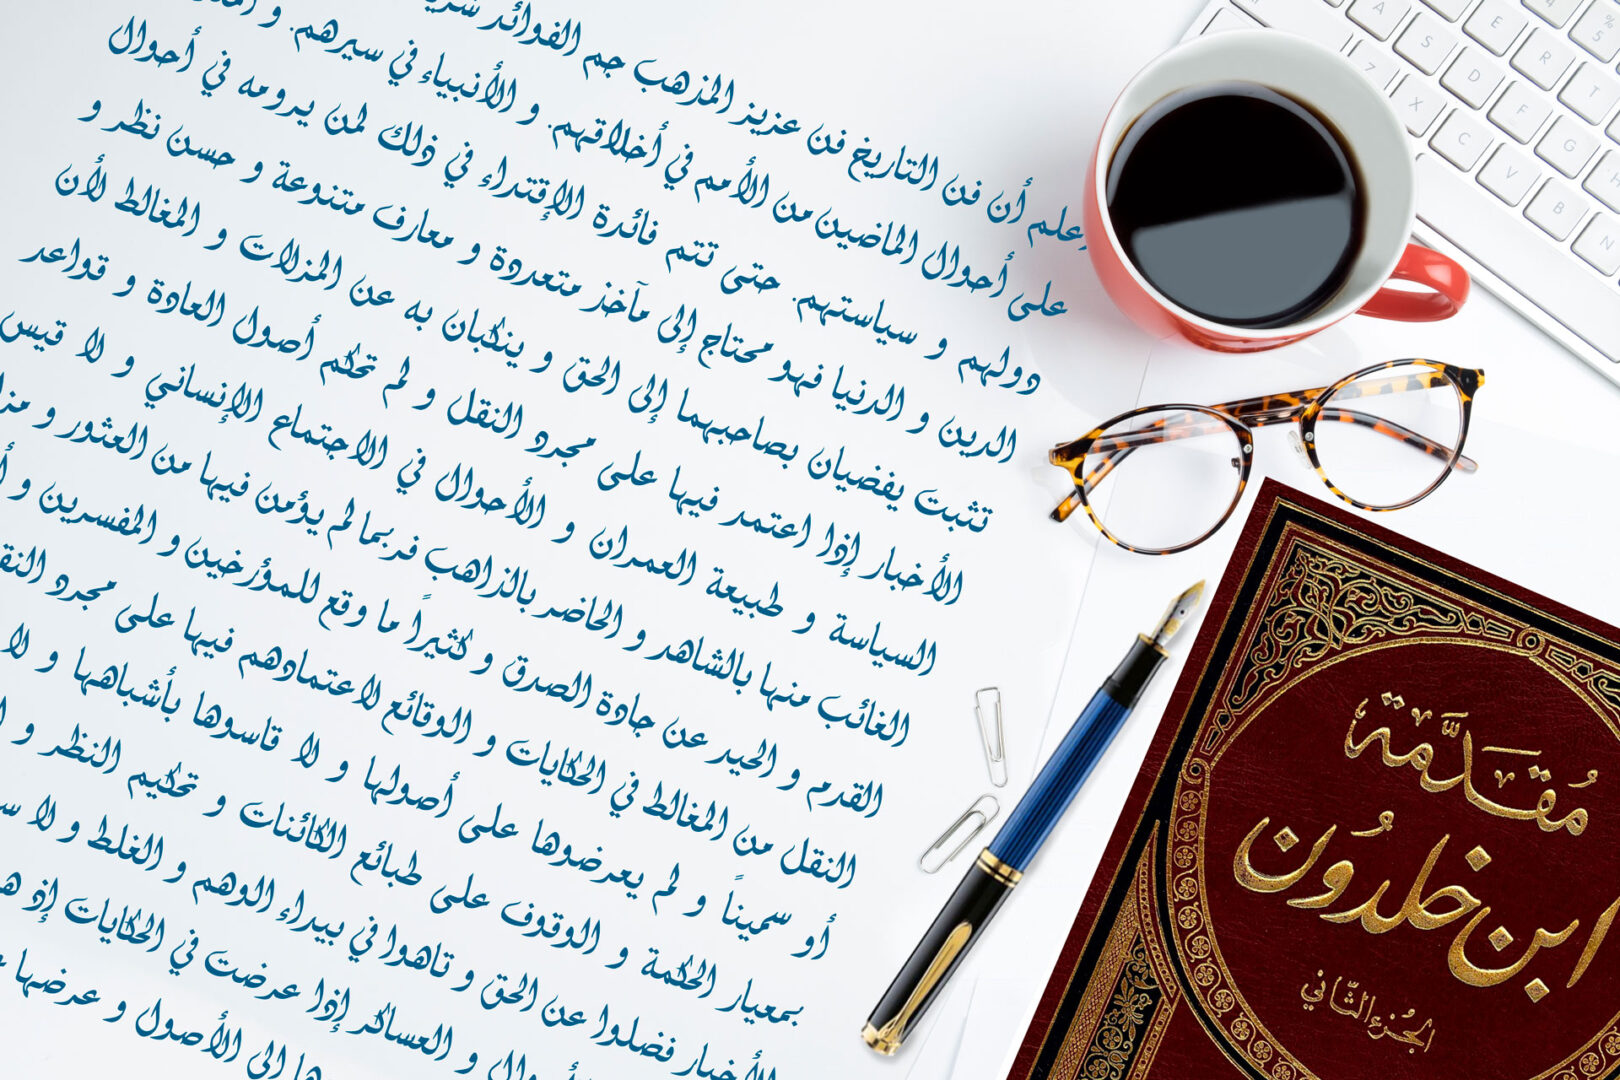 علم أن فن التاريخ فن عزيز المذهب جم الفوائد
على أحوال الماضين من الأمم في أخلاقهم. و الأنبياء في سيرهم. و
دولهم و سياستهم. حتى تتم فائدة الإقتداء في ذلك لمن يرومه في أحوال
الدين و الدنيا فهو محتاج إلى مآخذ متعددة و معارف متنوعة و حسن نظر و
تثبت يفضيان بصاحبهما إلى الحق و ينكبان به عن المزلات و المغالط لأن
الأخبار إذا اعتمد فيها على مجرد النقل و لم تحكم أصول العادة و قواعد
السياسة و طبيعة العمران و الأحوال في الاجتماع الإنساني و لا قيس
الغائب منها بالشاهد و الحاضر بالذاهب فربما لم يؤمن فيها من العثور و
القدم و الحيد عن جادة الصدق و كثيراً ما وقع للمؤرخين و المفسرين و
النقل من المغالط في الحكايات و الوقائع لاعتمادهم فيها على مجرد
أو سميناً و لم يعرضوها على أصولها و لا قاسوها بأشباهها و لا
بمعيار الحكمة و الوقوف على طبائع الكائنات و تحكيم النظر و
الأخبار فضلوا عن الحق و تاهوا في بيداء الوهم و الغلط و لا
و العساكر إذا عرضت في الحكايات إذ
إلى الأصول و عرضها
مُقَدَّمة
ابن خلدُون
الجُزء الثَّاني
A
S
E
R
D
T
Z
X
F
C
G
V
B
N
4
5
%